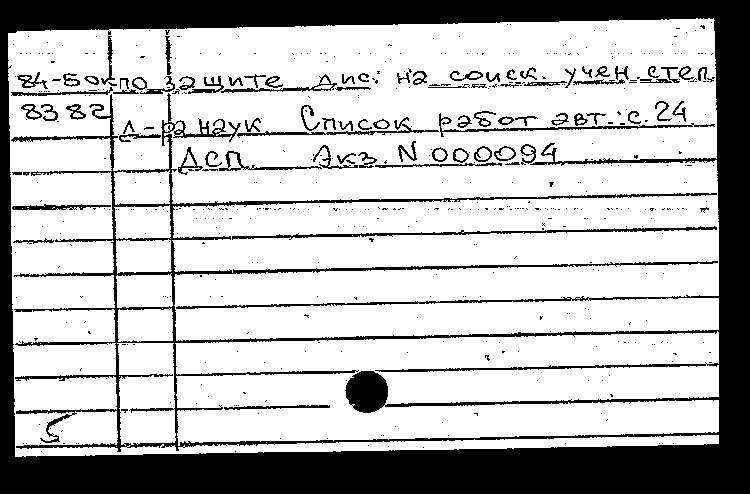 84-5окпо защите дис. на соиск. учен. степ.
8382 д-ра наук Список работ авт.: с. 24.
ДСП. Экз. N 000094
5